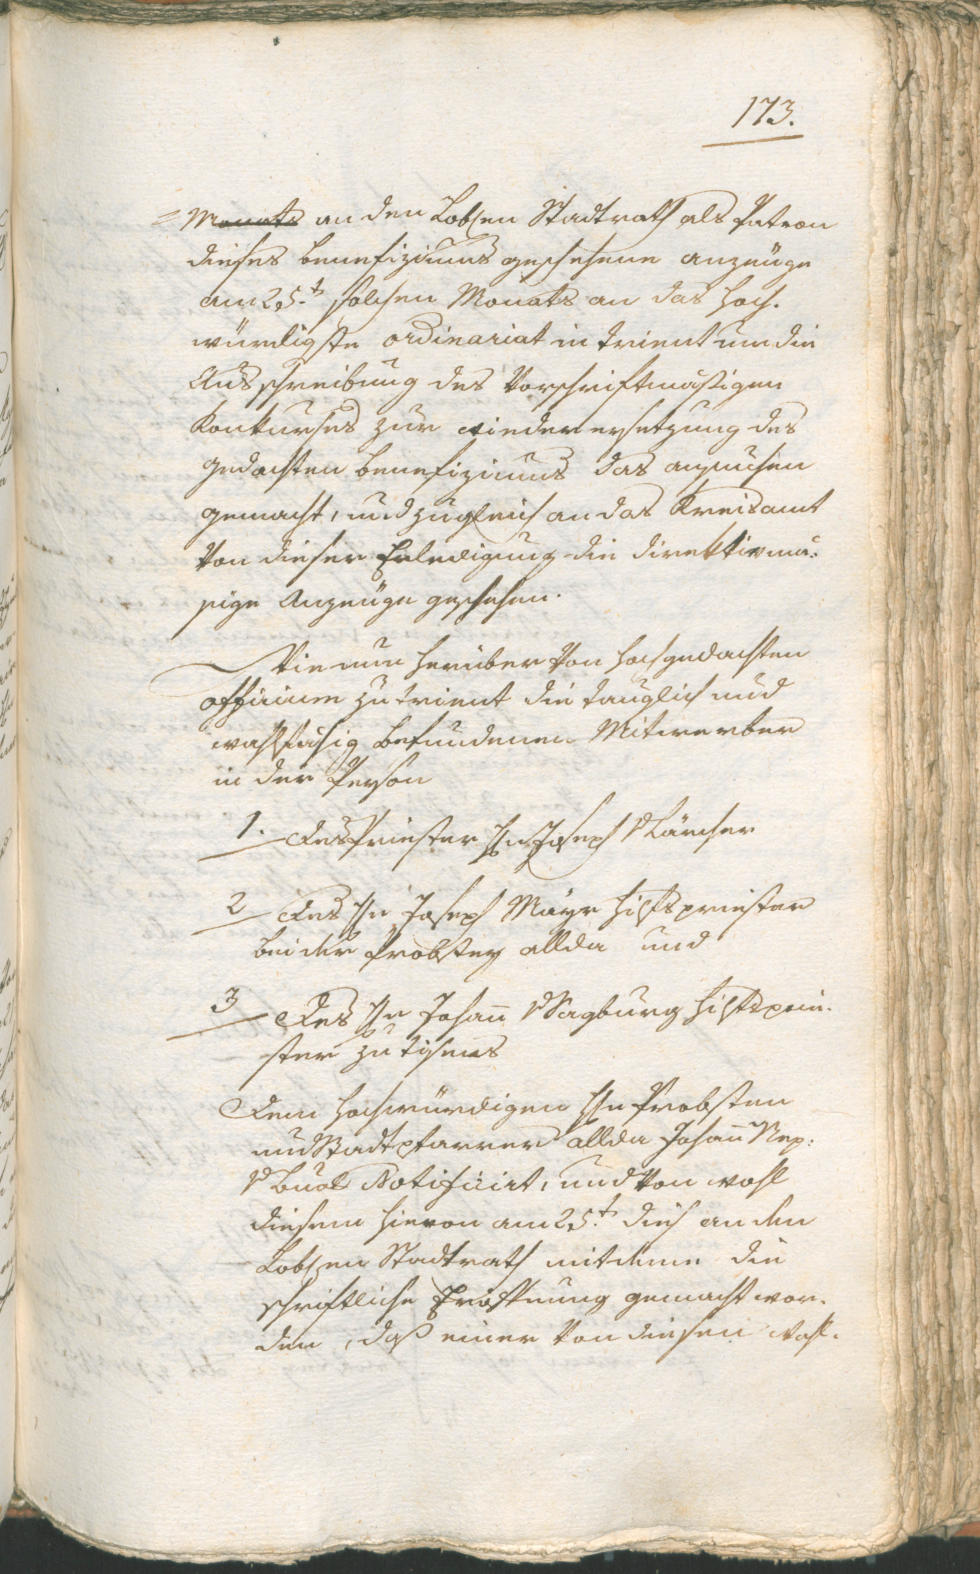 173.
= Monats an den Lobl:en Stadtrath als Patron
dieses Benefiziums geschehene Anzeüge
am 25.t solchen Monats an das hoch-
würdigste ordinariat in Trient um die
Ausschreibung des Vorschriftmäßigen
Konkurses zur wiederersetzung des
gedachten Benefiziums das ansuchen
gemacht, und zugleich an das Kreisamt
von dieser Erledigung die direktivmä-
ßige Anzeüge geschehen.
Wie nun herüber von hochgedachten
officium zu Trient die tauglich und
wahlfähig befundenen Mitwerber
in der Person
1. des Priester H:n Joseph v Lärcher
2 des H:n Joseph Mayr hilfspriester
bei der Probstey allda und
3 des H:n Johañ v Sagburg hilfsprie-
ster zu Tisens
dem hochwürdigen H:n Probsten
und Stadtpfarrer allda Johañ Nep:
v Buol Notificirt, und von wohl
diesem hievon am 25.t dieß an den
Lobl:en Stadtrath mitdeme die
schriftliche Eröffnung gemacht wor-
den, daß einer von diesen wahl-